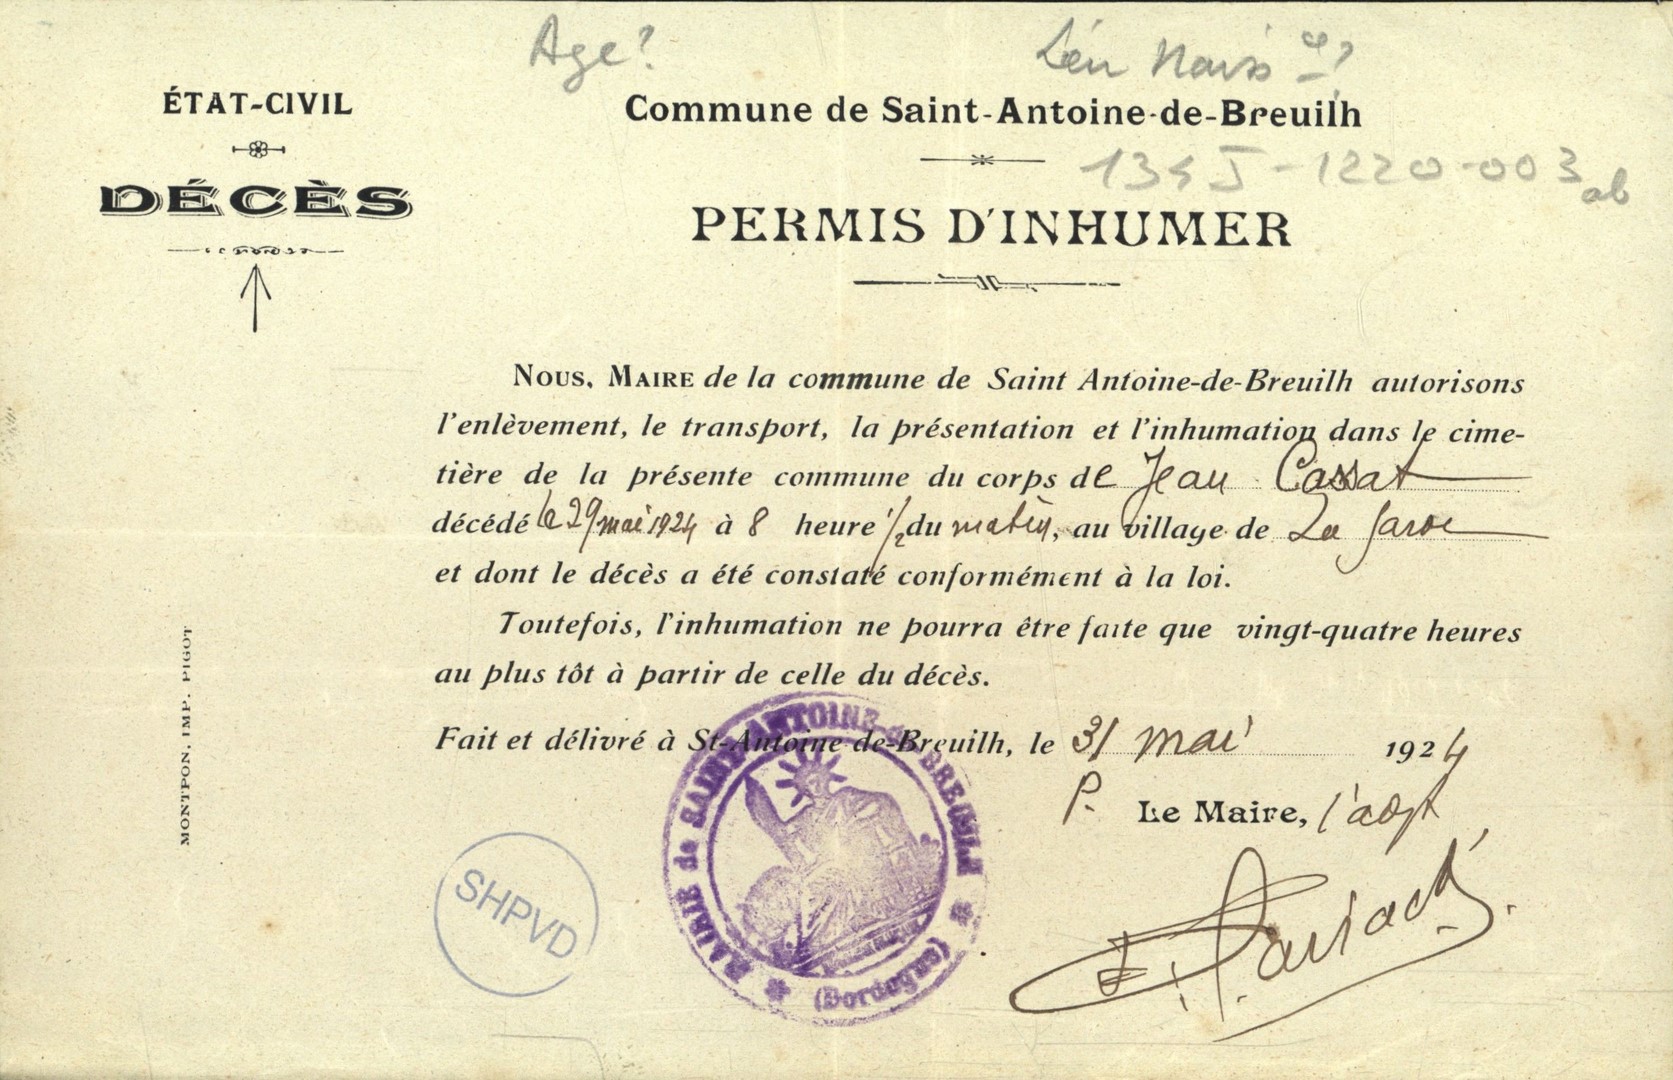 Age?
Lieu Naiss ce?
ÉTAT-CIVIL
DÉCÈS
Commune de Saint-Antoine-de-Breuilh
134J-1220-003 ab
PERMIS D'INHUMER
Nous, Maire de la commune de Saint Antoine-de-Breuilh autorisons
l'enlèvement, le transport, la présentation et l'inhumation dans le cime-
tière de la présente commune du corps de Jean Cassat
décédé le 29 mai 1924 à 8 heure 1/2 du matin, au village de La
et dont le décès a été constaté conformément à la loi.
Toutefois, l'inhumation ne pourra être faite que vingt-quatre heures
au plus tôt à partir de celle du décès.
Fait et délivré à St-Antoine-de-Breuilh, le 31 mai 1924
P. Le Maire, l'adjt
MAIRIE de SAINT-ANTOINE-de-BREUILH
(Dordogne)
SHPVD
MONTPON, IMP. PIGOT